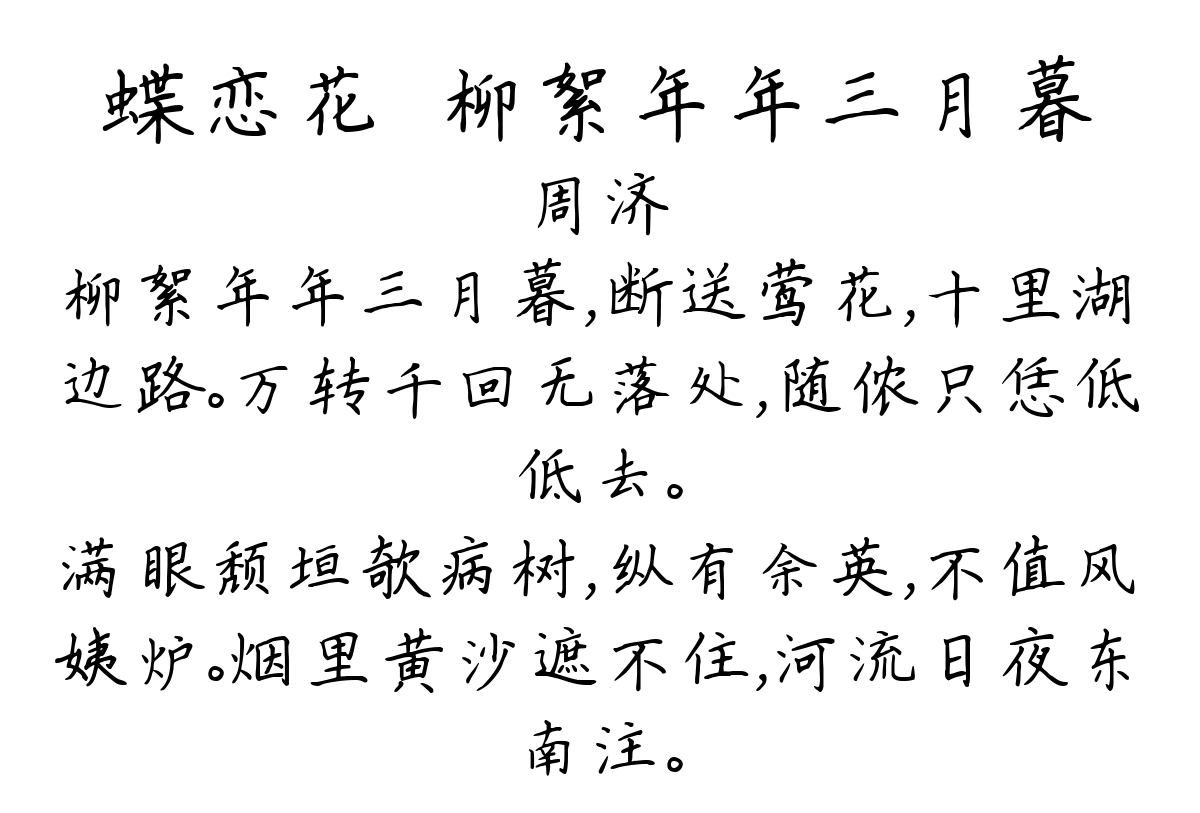 蝶恋花 柳絮年年三月暮
周济
柳絮年年三月暮,断送莺花,十里湖
边路。万转千回无落处,随侬只恁低
低去。
满眼颓垣欹病树,纵有余英,不值风
姨炉。烟里黄沙遮不住,河流日夜东
南注。